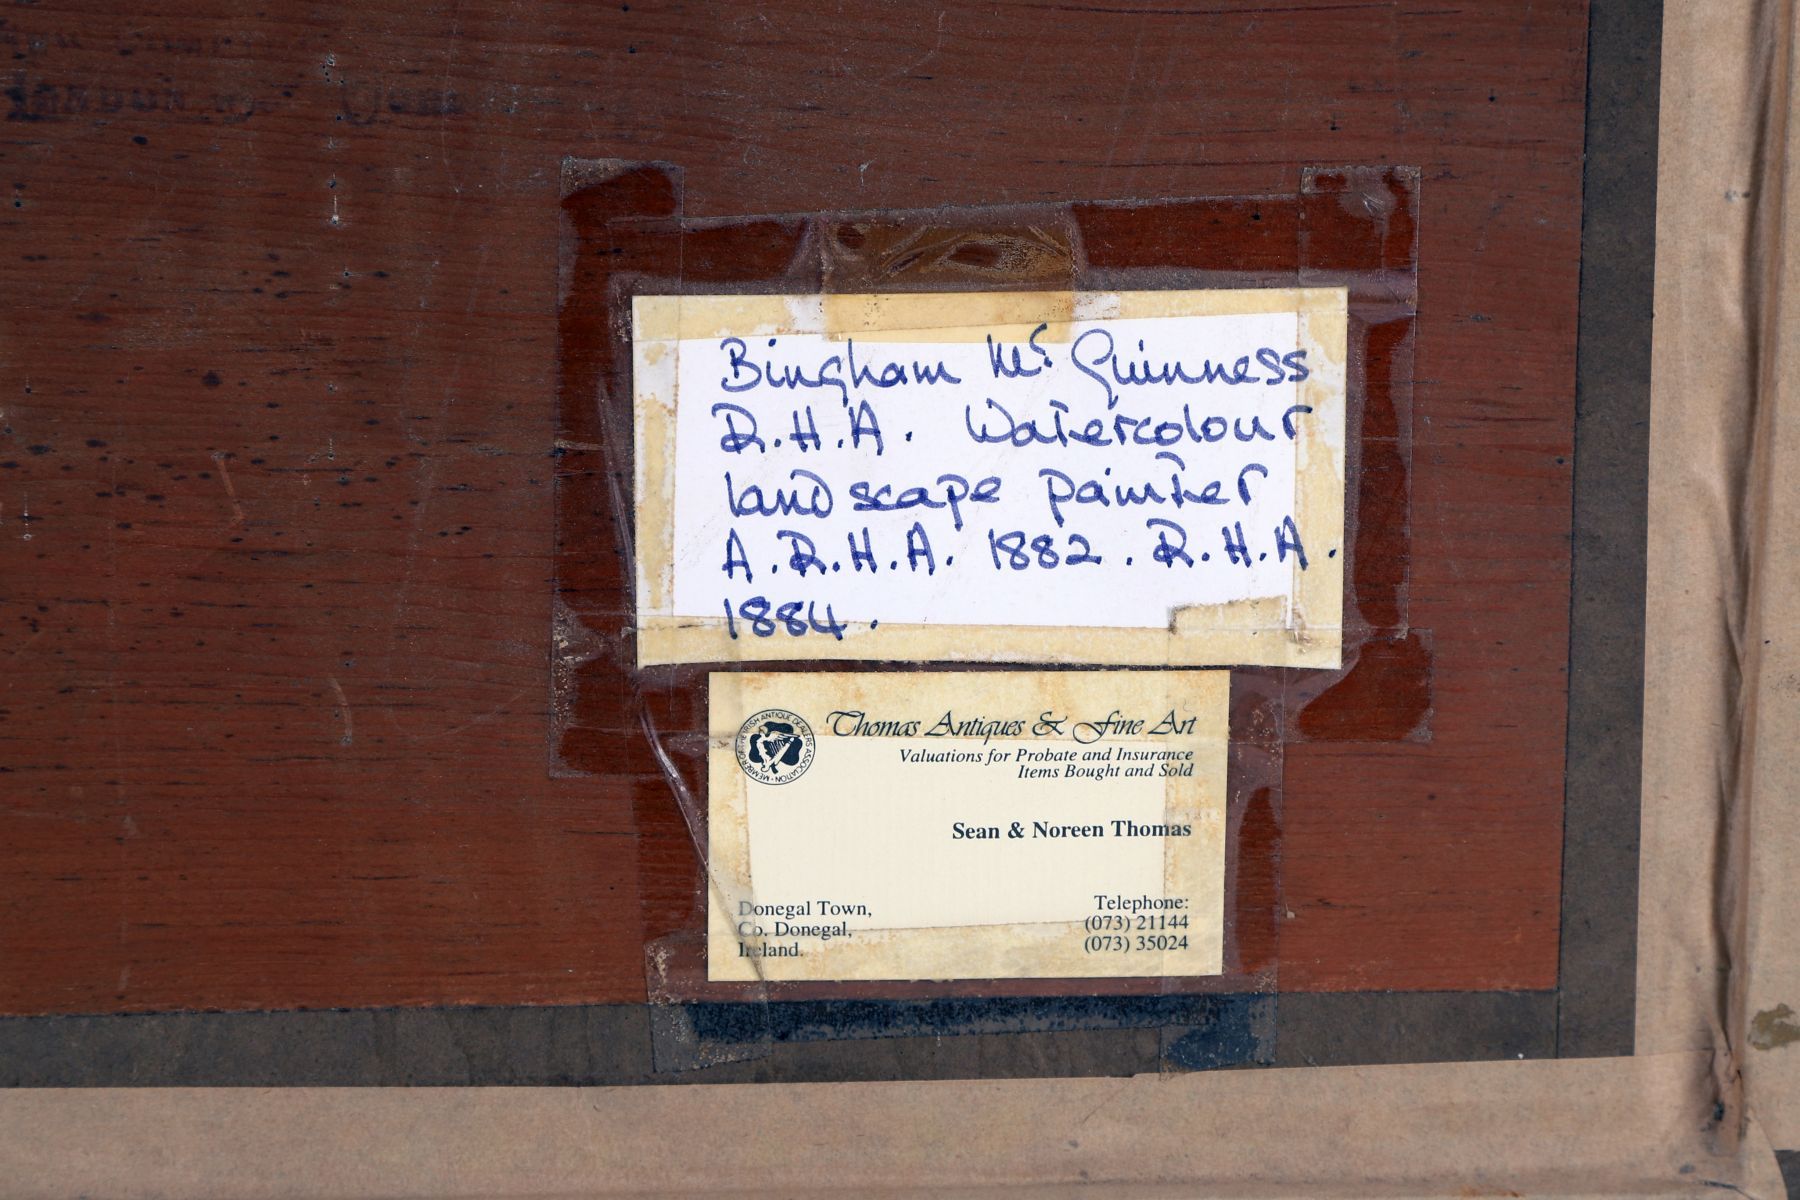 Bingham Mc Guinness
R.H.A. Watercolour
landscape painter
A.R.H.A. 1882. R.H.A.
1884.
Thomas Antiques & Fine Art
MEMBER OF THE IRISH ANTIQUE DEALERS ASSOCIATION
Valuations for Probate and Insurance
Items Bought and Sold
Sean & Noreen Thomas
Donegal Town,
Co. Donegal,
Ireland.
Telephone:
(073) 21144
(073) 35024